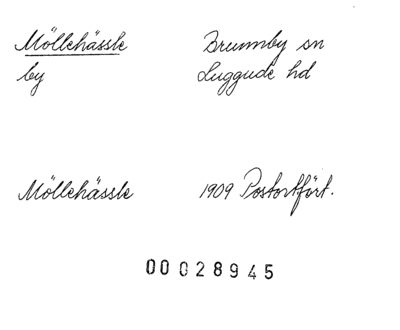 Möllehässle Brunnby sn
by Luggude hd
Möllehässle 1909 Postortfört.
00028945